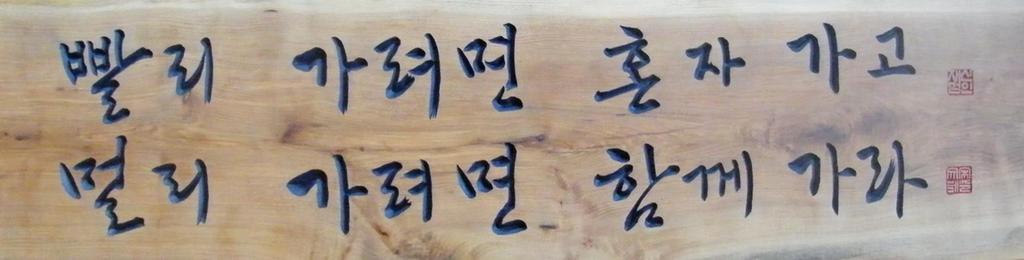 빨리 가려면 혼자 가고
멀리 가려면 함께 가라